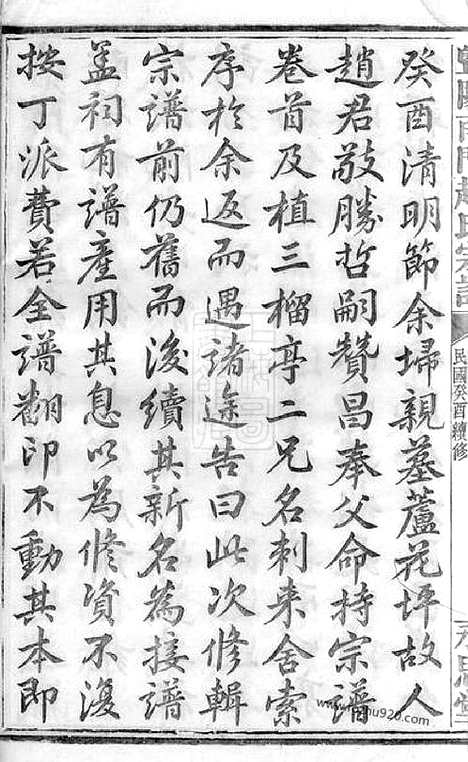 癸酉清明節余埽親墓蘆花坪故人
趙君敬勝哲嗣贊昌奉父命持宗譜
卷首及植三榴亭二兄名刺来舍索
序於余返而遇諸途告曰此次修輯
宗譜前仍舊而後續其新名為接譜
盖祠有譜產用其息以為修資不復
按丁派費若全譜翻印不動其本即
趙氏宗譜
民國癸酉續修